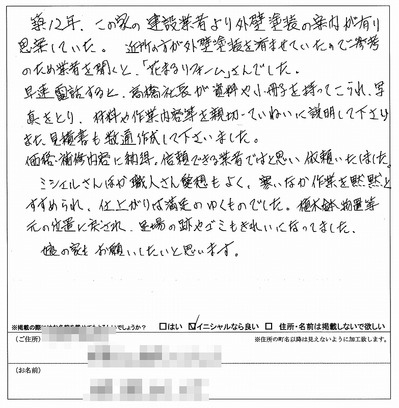 築12年、この家の建設業者より外壁塗装の案内が有り
思案していた。近所の方が外壁塗装を済ませていたので参考
のため業者を聞くと、「だまるリフォーム」さんでした。
早速電話すると、高橋社長が資料や小冊子を持ってこられ、写
真をとり、材料や作業内容等を親切、ていねいに説明して下さり
また見積書も数通作成して下さいました。
価格・補修内容に納得。信頼できる業者ではと思い依頼いたしました。
ミシェルさんほか職人さん愛想もよく、寒いなか作業を黙黙と
すすめられ、仕上がりは満足のゆくものでした。植木鉢、物置等
元の位置に戻され、足場の跡やゴミもきれいになってました。
娘の家もお願いしたいと思います。
でしょうか? □はい ☑イニシャルなら良い □ 住所・名前は掲載しないで欲しい
(ご住所) ※住所の町名以降は見えないように加工致します。
(お名前)